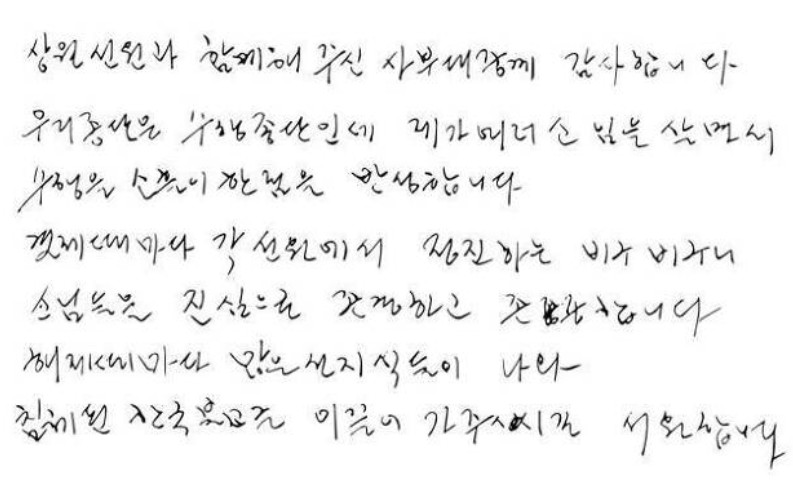 상월선원과 함께해 주신 사부대중께 감사합니다
우리종단은 수행종단인데 제가 여러 소임을 살면서
수행을 소홀이 한 점을 반성합니다
결제때마다 각 선원에서 정진하는 비구 비구니
스님들을 진심으로 존경하고 존중합니다
해제때마다 많은 선지식들이 나와
침체된 한국불교를 이끌어 가주시길 서원합니다